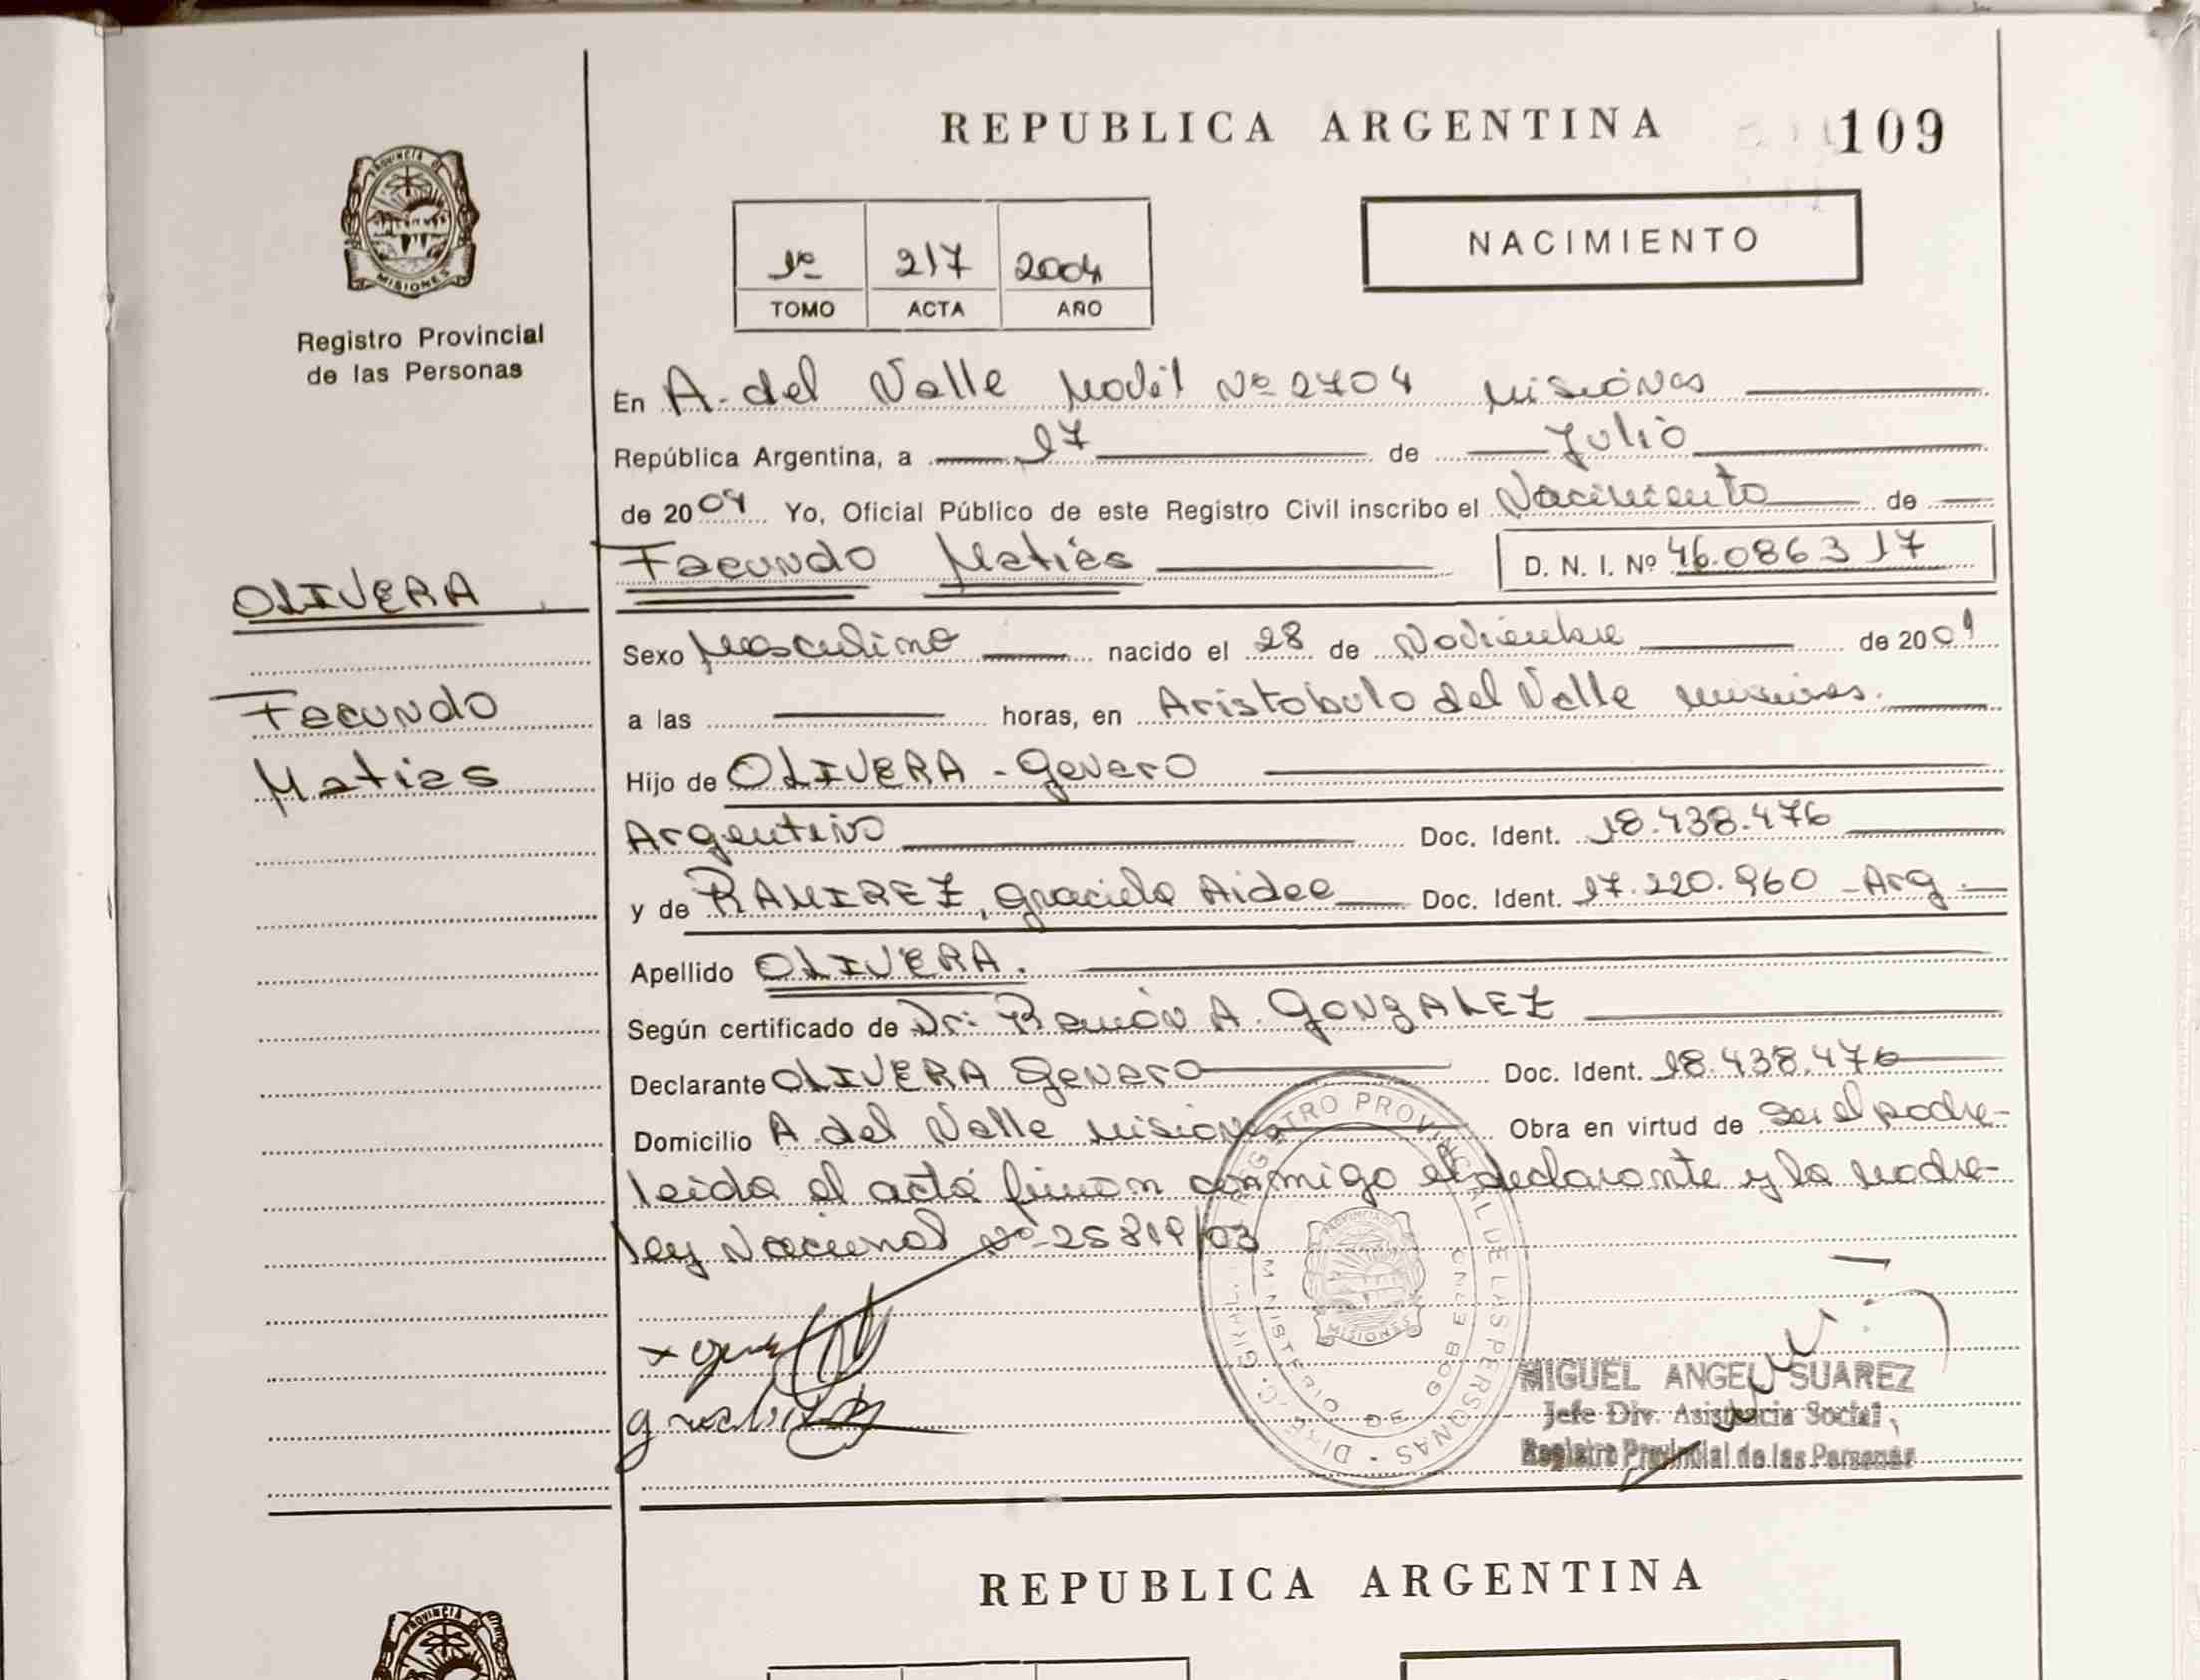 REPUBLICA ARGENTINA
109
PROVINCIA DE
MISIONES
Registro Provincial
de las Personas
1º 217 2004
TOMO ACTA AÑO
NACIMIENTO
En A. del Valle Movil Nº 2704 Misiones
República Argentina, a 17 de Julio
de 2004 Yo, Oficial Público de este Registro Civil inscribo el Nacimiento de
Facundo Matias D. N. I. Nº 46.086317
OLIVERA
Facundo
Matias
Sexo Masculino nacido el 28 de Noviembre de 2001
a las horas, en Aristobulo del Valle misiones.
Hijo de OLIVERA - Genero
Argentino Doc. Ident. 18.438.476
y de RAMIREZ, Graciela Aidee Doc. Ident. 17.220.960 - Arg.
Apellido OLIVERA.
Según certificado de Dr: Ramón A. GONZALEZ
Declarante OLIVERA Genero Doc. Ident. 18.438.476
Domicilio A. del Valle misiones Obra en virtud de ser el padre-
leida el acta firman conmigo el declarante y la madre-
ley Nacional Nº 25819/03
DIREC. GRAL. REGISTRO PROVINCIAL DE LAS PERSONAS
MINISTERIO DE GOBIERNO
PROVINCIA DE
MISIONES
MIGUEL ANGEL SUAREZ
Jefe Div. Asistencia Social
Registro Provincial de las Personas
REPUBLICA ARGENTINA
PROVINCIA DE